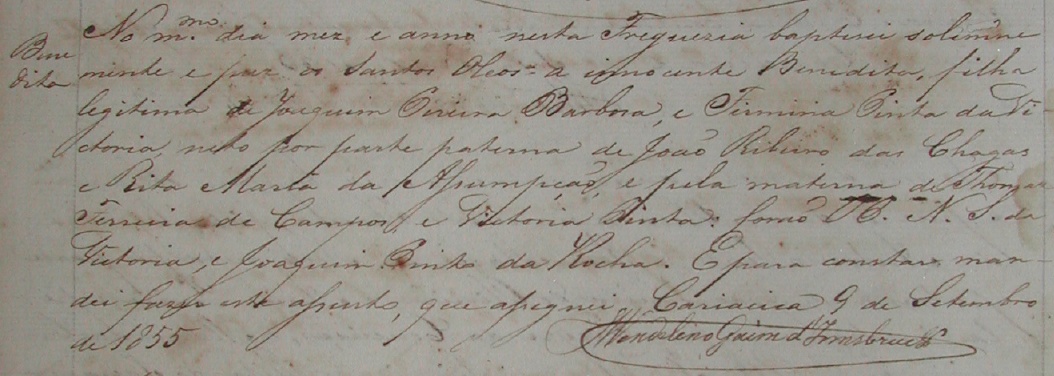 No m.mo dia mez e anno nesta Freguezia baptisei solemne
Bene
dita
mente e puz os Santos Oleos a innocente Benedita, filha
legitima de Joaquim Pereira Barbosa, e Firmina Pinta da Vi-
ctoria, neto por parte paterna de João Ribeiro das Chagas
e Rita Maria da Assumpção, e pela materna de Thomaz
Ferreira de Campos, e Victoria Pinta: forão PP. N. S. da
Victoria, e Joaquim Pinto da Rocha. E para constar man-
dei fazer este assento, que assignei. Cariacica 9 de Setembro
de 1855
d'Innsbruck